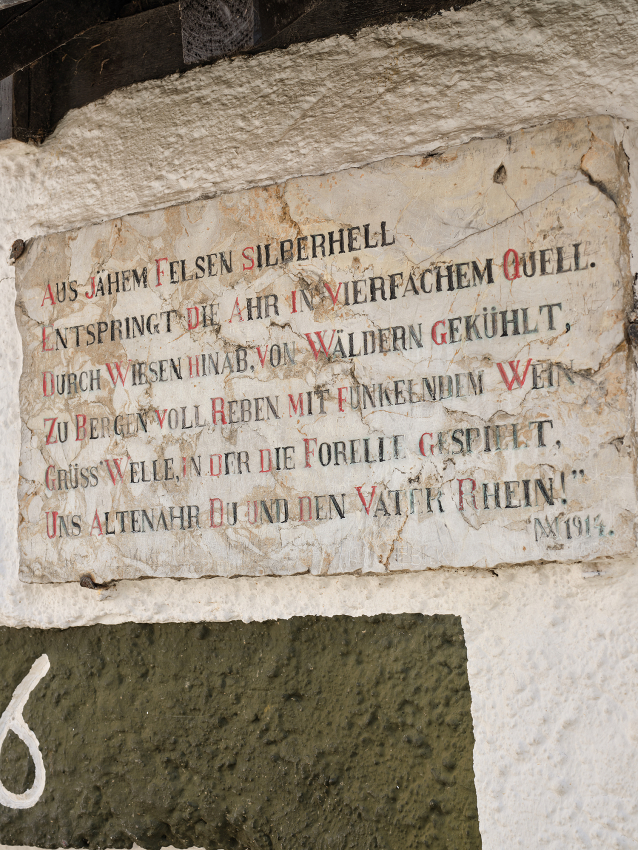 AUS JÄHEM FELSEN SILBERHELL
ENTSPRINGT DIE AHR IN VIERFACHEM QUELL.
DURCH WIESEN HINAB, VON WÄLDERN GEKÜHLT,
ZU BERGEN VOLL REBEN MIT FUNKELNDEM WEIN
GRÜSS' WELLE, IN DER DIE FORELLE GESPIELT,
UNS ALTENAHR DU UND DEN VATER RHEIN!"
1914.
6